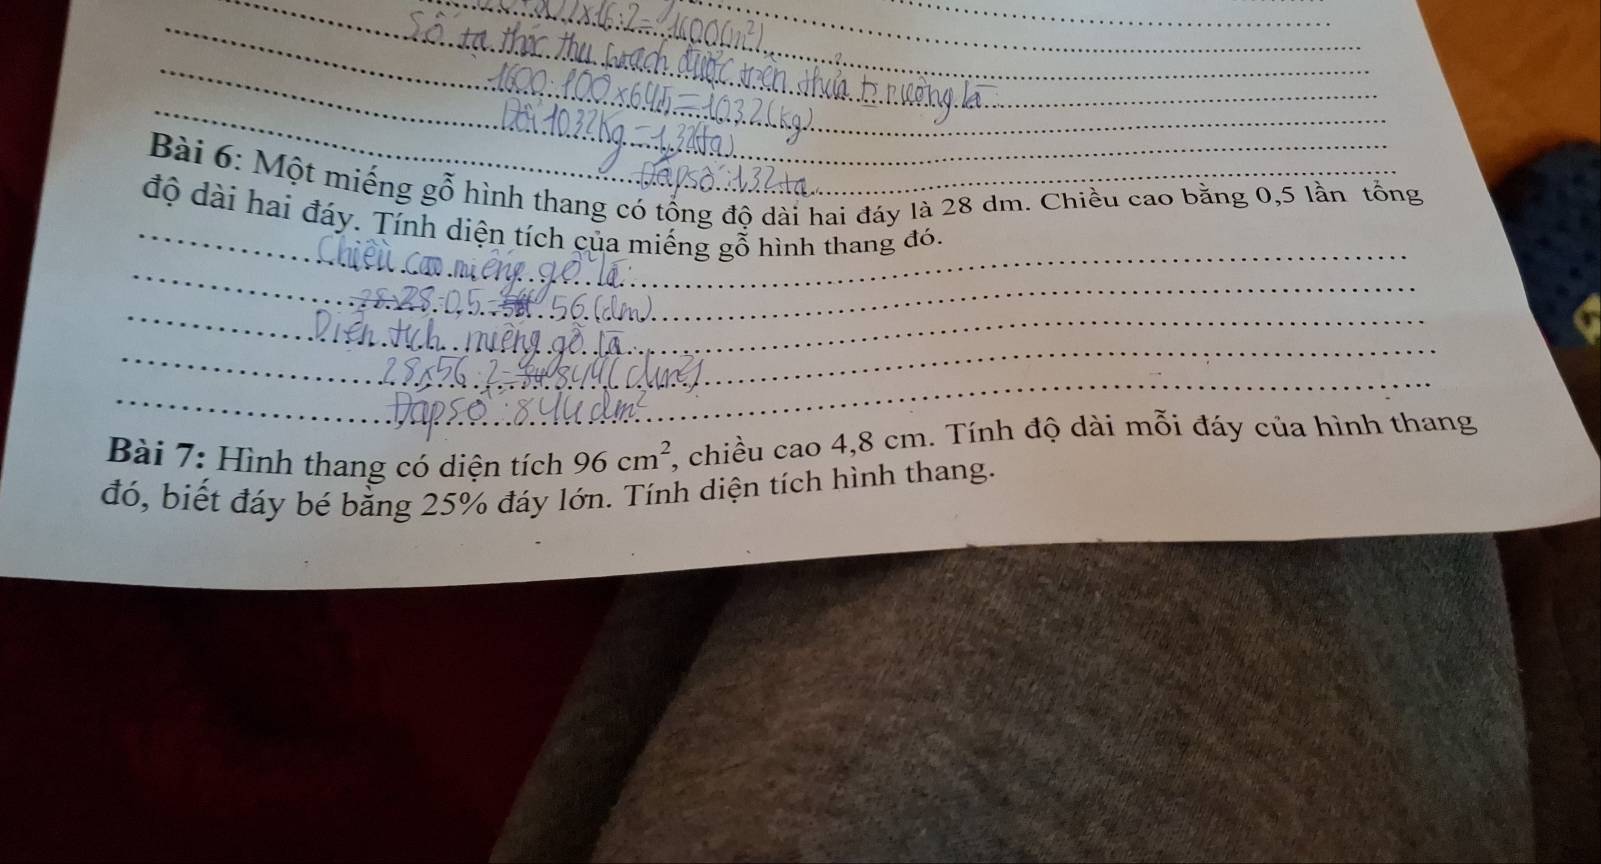 x16:2=1600(m²)
Số tạ thóc thu hoạch được trên thửa ruộng là
1600:100×64,5=1032(kg)
Đổi 1032kg=1,32(tạ)
Đáp số:1,32 tạ
Bài 6: Một miếng gỗ hình thang có tổng độ dài hai đáy là 28 dm. Chiều cao bằng 0,5 lần tổng
độ dài hai đáy. Tính diện tích của miếng gỗ hình thang đó.
Chiều cao miếng gỗ là:
28:0,5= 56(dm)
Diện tích miếng gỗ là
28×56:2=
Đáp số:844dm²
Bài 7: Hình thang có diện tích 96 cm², chiều cao 4,8 cm. Tính độ dài mỗi đáy của hình thang
đó, biết đáy bé bằng 25% đáy lớn. Tính diện tích hình thang.